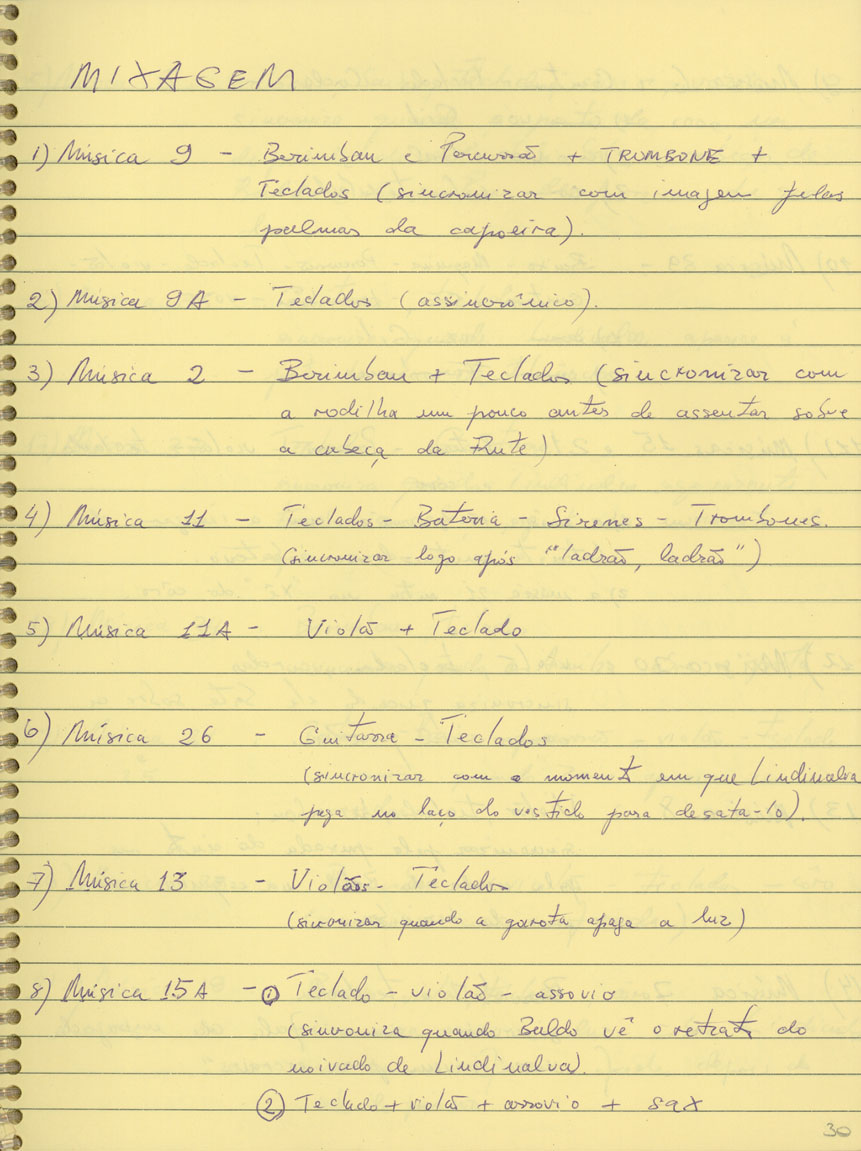 MIXAGEM
1) Música 9 - Berimbau e Percussão + TROMBONE +
Teclados (sincronizar com imagem pelas
palmas da capoeira).
2) Música 9A - Teclados (assincrônico).
3) Música 2 - Berimbau + Teclados (sincronizar com
a rodilha um pouco antes de assentar sobre
a cabeça da Rute)
4) Música 11 - Teclados - Bateria - Sirenes - Trombones.
(sincronizar logo após "ladrão, ladrão")
5) Música 11A - Violão + Teclado
6) Música 26 - Guitarra - Teclados
(sincronizar com o momento em que Lindinalva
pega no laço do vestido para desata-lo).
7) Música 13 - Violões - Teclados
(sincronizar quando a garota apaga a luz)
8) Música 15A - 1) Teclado - violão - assovio
(sincroniza quando Baldo vê o retrato do
noivado de Lindinalva).
2) Teclado + violão + assovio + sax
30